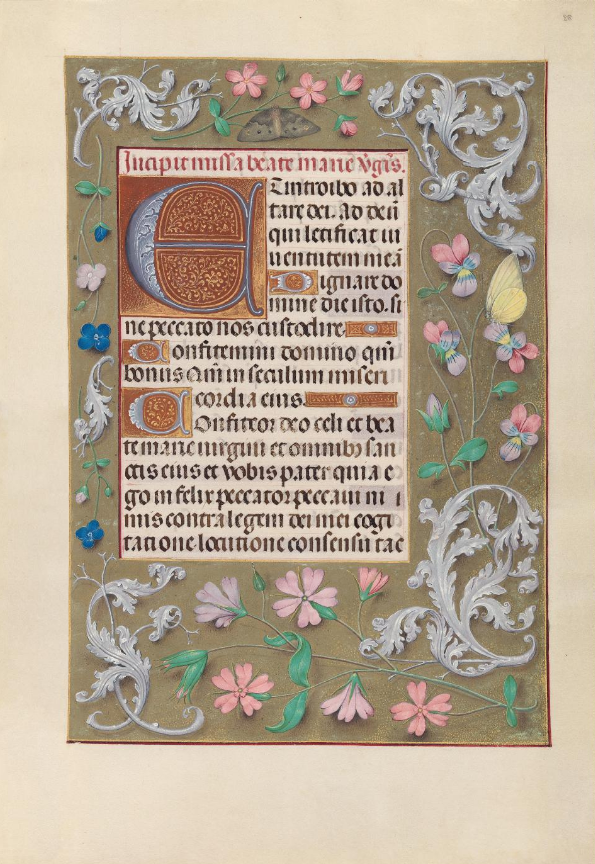 Incipit missa beate marie v̄gīs.
Et introibo ad al
tare dei. Ad deū
qui letificat iu
uentutem meā
Dignare do
mine die isto. si
ne peccato nos custodire
Confitemini domino qm̄
bonus Qm̄ in seculum miseri
cordia eius
Confiteor deo celi et bea
te marie uirgini et omnibꝫ san
ctis eius et vobis pater quia e
go infelix peccator peccaui ni
mis contra legem dei mei cogi
tatione locutione consensu tac